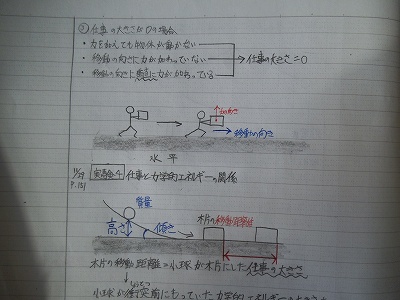 ① 仕事の大きさが0の場合
・力を加えても物体が動かない
・移動の向きに力が加わっていない → 仕事の大きさ=0
・移動の向きに垂直に力が加わっている
↑力の向き
→移動の向き
水平
P.151
実験4 仕事と力学的エネルギーの関係
質量
高さ
傾き
木片の移動距離
木片の移動距離=小球が木片にした仕事の大きさ
小球が衝突前にもっていた力学的エネルギーの大きさ